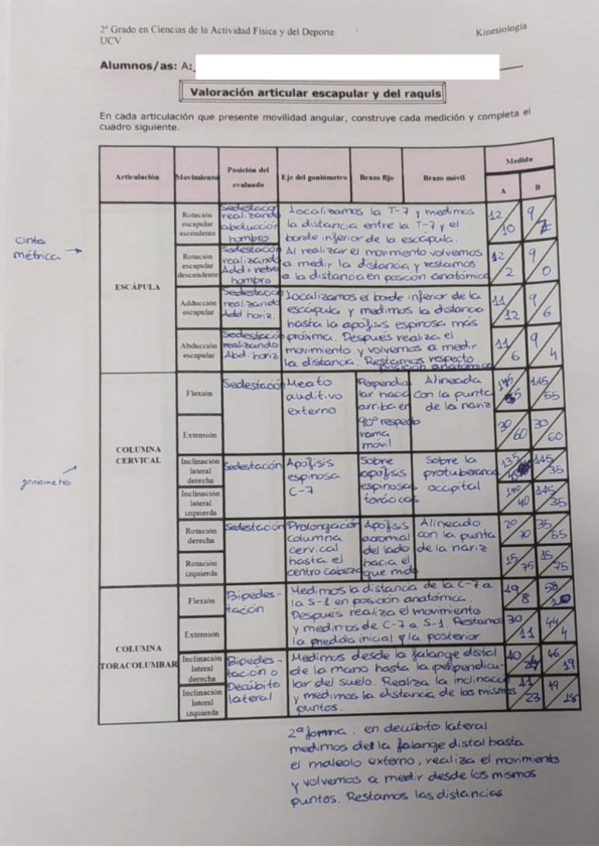 2º Grado en Ciencias de la Actividad Física y del Deporte
UCV
Kinesiología
Alumnos/as: A:
Valoración articular escapular y del raquis
En cada articulación que presente movilidad angular, construye cada medición y completa el
cuadro siguiente.
Articulación Movimiento Posición del evaluado Eje del goniómetro Brazo fijo Brazo móvil Medida
A B
cinta
métrica
ESCÁPULA
Rotación escapular ascendente
Sedestación
realizando
abducción
hombro
Localizamos la T-7 y medimos
la distancia entre la T-7 y el
borde inferior de la escápula.
12 10 9 7
Rotación escapular descendente
Sedestación
realizando
Add + retro
hombro
Al realizar el movimiento volvemos
a medir la distancia y restamos
a la distancia en posición anatómica
12 2 9 0
Adducción escapular
Sedestación
realizando
Add horiz.
Localizamos el borde inferior de la
escápula y medimos la distancia
hasta la apófisis espinosa más
11 12 9 6
Abducción escapular
Sedestación
realizando
Abd. horiz
próxima. Después realiza el
movimiento y volvemos a medir
la distancia. Restamos respecto
posición anatómica
11 6 9 4
COLUMNA CERVICAL
Flexión
Sedestación
Meato
auditivo
externo
Perpendicu
lar hacia
arriba en
90º respecto
rama
movil
Alineada
con la punta
de la nariz
145 145
55
Extensión
30 60 30 60
goniometro
Inclinación lateral derecha
Sedestación
Apófisis
espinosa
C-7
Sobre
apófisis
espinosas
torácicas
Sobre la
protuberancia
occipital
135 145 35
Inclinación lateral izquierda
140 40 145 35
Rotación derecha
Sedestación
Prolongación
columna
cervical
hasta el
centro cabeza
Apófisis
acromial
del lado
hacia el
que mide
Alineado
con la punta
de la nariz
20 70 35 55
Rotación izquierda
15 75 15 75
COLUMNA TORACOLUMBAR
Flexión
Bipedes-
tación
Medimos la distancia de la C-7 a
la S-1 en posición anatómica.
Despues realiza el movimiento
y medimos de C-7 a S-1. Restamos
la medida inicial y la posterior
19 8 58
Extensión
30 11 44 4
Inclinación lateral derecha
Bipedes-
tación o
Decúbito
lateral
Medimos desde la falange distal
de la mano hasta la perpendicu-
lar del suelo. Realiza la inclinacion
y medimos la distancia de los mismos
puntos.
40 46 19
Inclinación lateral izquierda
11 23 49 18
2ª forma: en decúbito lateral
medimos del la falange distal hasta
el maleolo externo, realiza el movimiento
y volvemos a medir desde los mismos
puntos. Restamos las distancias